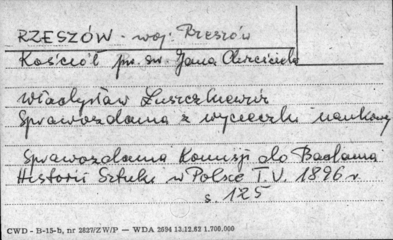 RZESZÓW - woj. Rzeszów
Kościół pw. św. Jana Chrzciciela
Władysław Łuszczkiewicz
Sprawozdania z wycieczki naukowej
Sprawozdania Komisji do Badania
Historii Sztuki w Polsce T.V. 1896 r.
s. 125
CWD - B-15-b, nr 2827/ZW/P — WDA 2694 13.12.62 1.700.000